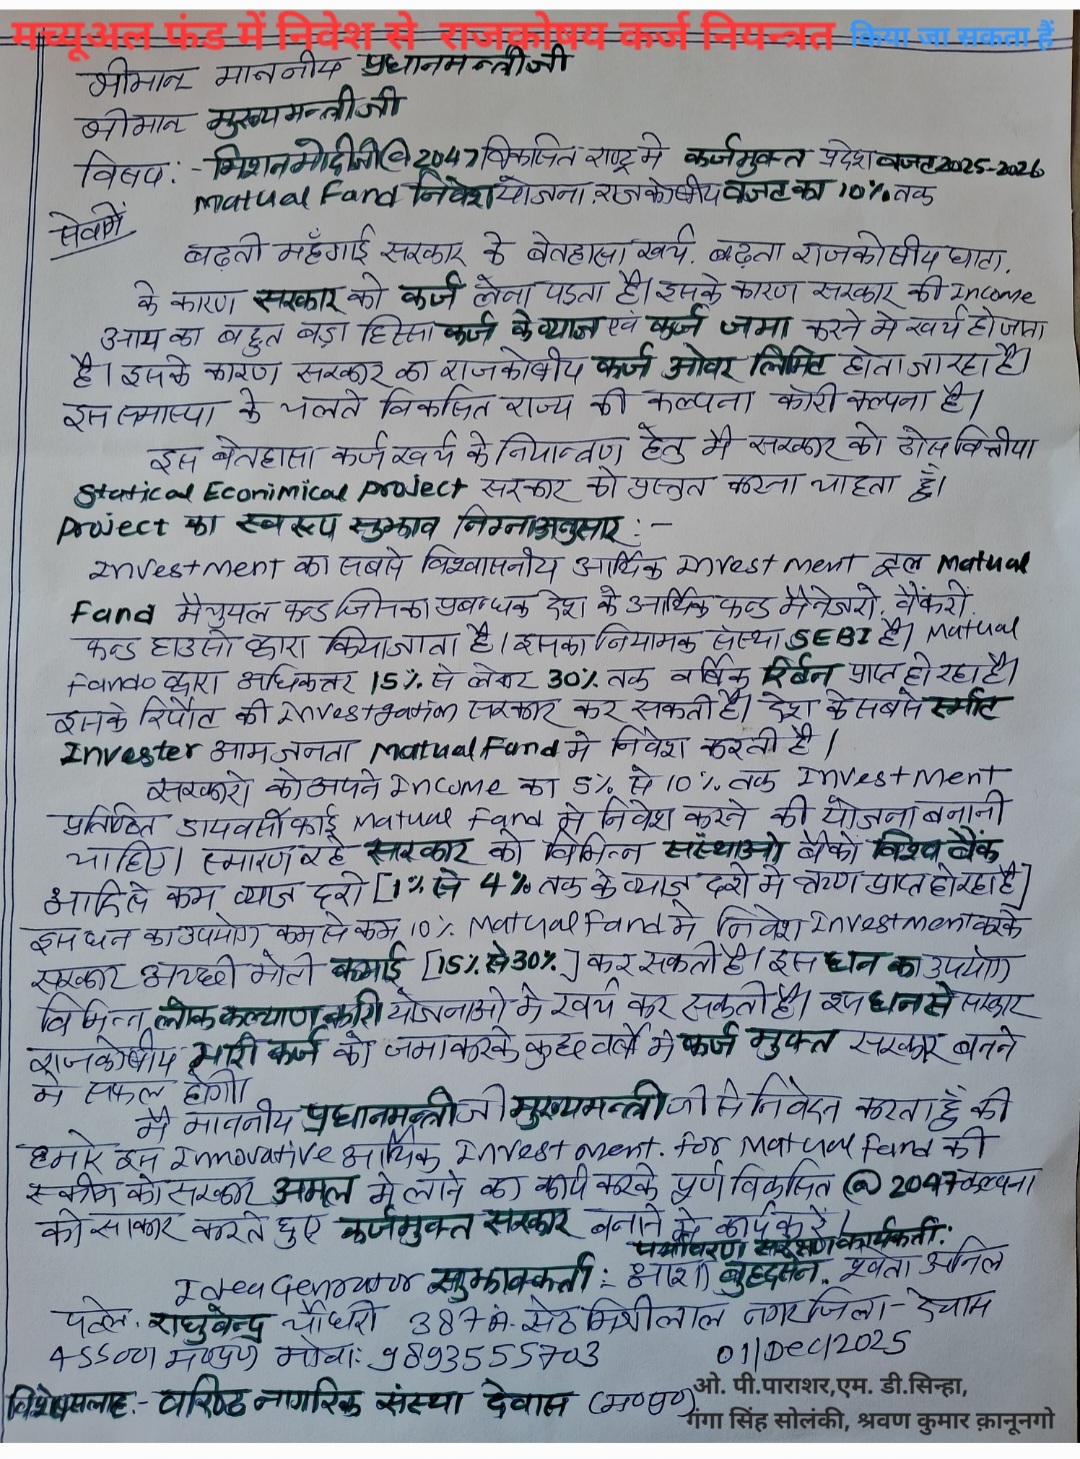 मच्यूअल फंड में निवेश से राजकोषय कर्ज नियन्त्रत किया जा सकता हैं
श्रीमान माननीय प्रधानमन्त्रीजी
श्रीमान मुख्यमन्त्रीजी
विषय:- मिशनमोदीजी@2047विकसित राष्ट्र मे कर्जमुक्त प्रदेश बजट2025-2026
Matual Fand निवेश योजना. राजकोषीय बजट का 10% तक
सेवामें
बढ़ती महँगाई सरकार के बेतहासा खर्च. बढ़ता राजकोषीय घाटा.
के कारण सरकार को कर्ज लेना पडता है। इसके कारण सरकार की Income
आय का बहुत बड़ा हिस्सा कर्ज के व्याज एवं कर्ज जमा करने मे खर्च हो जाता
है। इसके कारण सरकार का राजकोषीय कर्ज ओवर लिमिट होता जा रहा है।
इस समास्या के चलते विकसित राज्य की कल्पना कोरी कल्पना है।
इस बेतहासा कर्ज खर्च के नियान्त्रण हेतु मै सरकार को ठोस वित्तीया
Statical Econimical project सरकार को प्रस्तुत करना चाहता हूँ।
project का स्वरूप सुझाव निम्नाअनुसार:-
Investment का सबसे विश्वासनीय आर्थिक Investment टूल Matual
Fand मैचुयल फन्ड जिसका प्रबन्धक देश के आर्थिक फन्ड मैनेजरो. बैंकरो.
फन्ड हाउसो द्वारा किया जाता है। इसका नियामक संस्था SEBI है। Matual
Fando द्वारा अधिकत्तर 15% से लेकर 30% तक वर्षिक रिर्टन प्राप्त हो रहा है।
इसके रिर्पोट की Investgation सरकार कर सकती है। देश के सबसे र्स्माट
Invester आम जनता Matual Fand मे निवेश करती है।
सरकारो को अपने Income का 5% से 10% तक Investment
प्रतिष्ठित डायवर्सीफाई Matual Fand मे निवेश करने की योजना बनानी
चाहिए। स्मारण रहे सरकार को विभिन्न संस्थाओ बैंको विश्व बैंक
आदि से कम व्याज दरो [1% से 4% तक के व्याज दरो मे ऋण प्राप्त हो रहा है]
इस धन का उपयोग कम से कम 10% Matual Fand मे निवेश Investment करके
सरकार अच्छी मोटी कमाई [15% से 30%] कर सकती है। इस धन का उपयोग
विभिन्न लोक कल्याण कारी योजनाओ मे खर्च कर सकती है। इस धन से सरकार
राजकोषीय भारी कर्ज को जमा करके कुछ वर्षो मे कर्ज मुक्त सरकार बनने
मे सफल होगी।
मै माननीय प्रधानमन्त्री जी मुख्यमन्त्री जी से निवेदन करता हूँ की
हमारे इस Innovative आर्थिक Investment. for Matual Fand की
स्कीम को सरकार अमल मे लाने का कार्य करके पूर्ण विकसित @2047 कल्पना
को साकार करते हुए कर्जमुक्त सरकार बनाने मे कार्य करे।
पर्यावरण संरक्षण कार्यकर्ता:
Idea Genrator सुझावकर्ता: आशा बृहदसेन. श्वेता अनिल
पत्ते. राघुवेन्द्र चौधरी 387 मे. सेठ मिश्रीलाल नगर जिला- देवास
455001 म०प्र०) मोबा: 9893555703 01/Dec/2025
विशेषसलाह:- वरिष्ठ नागरिक संस्था देवास (म०प्र०)
ओ. पी.पाराशर,एम. डी.सिन्हा,
गंगा सिंह सोलंकी, श्रवण कुमार क़ानूनगो